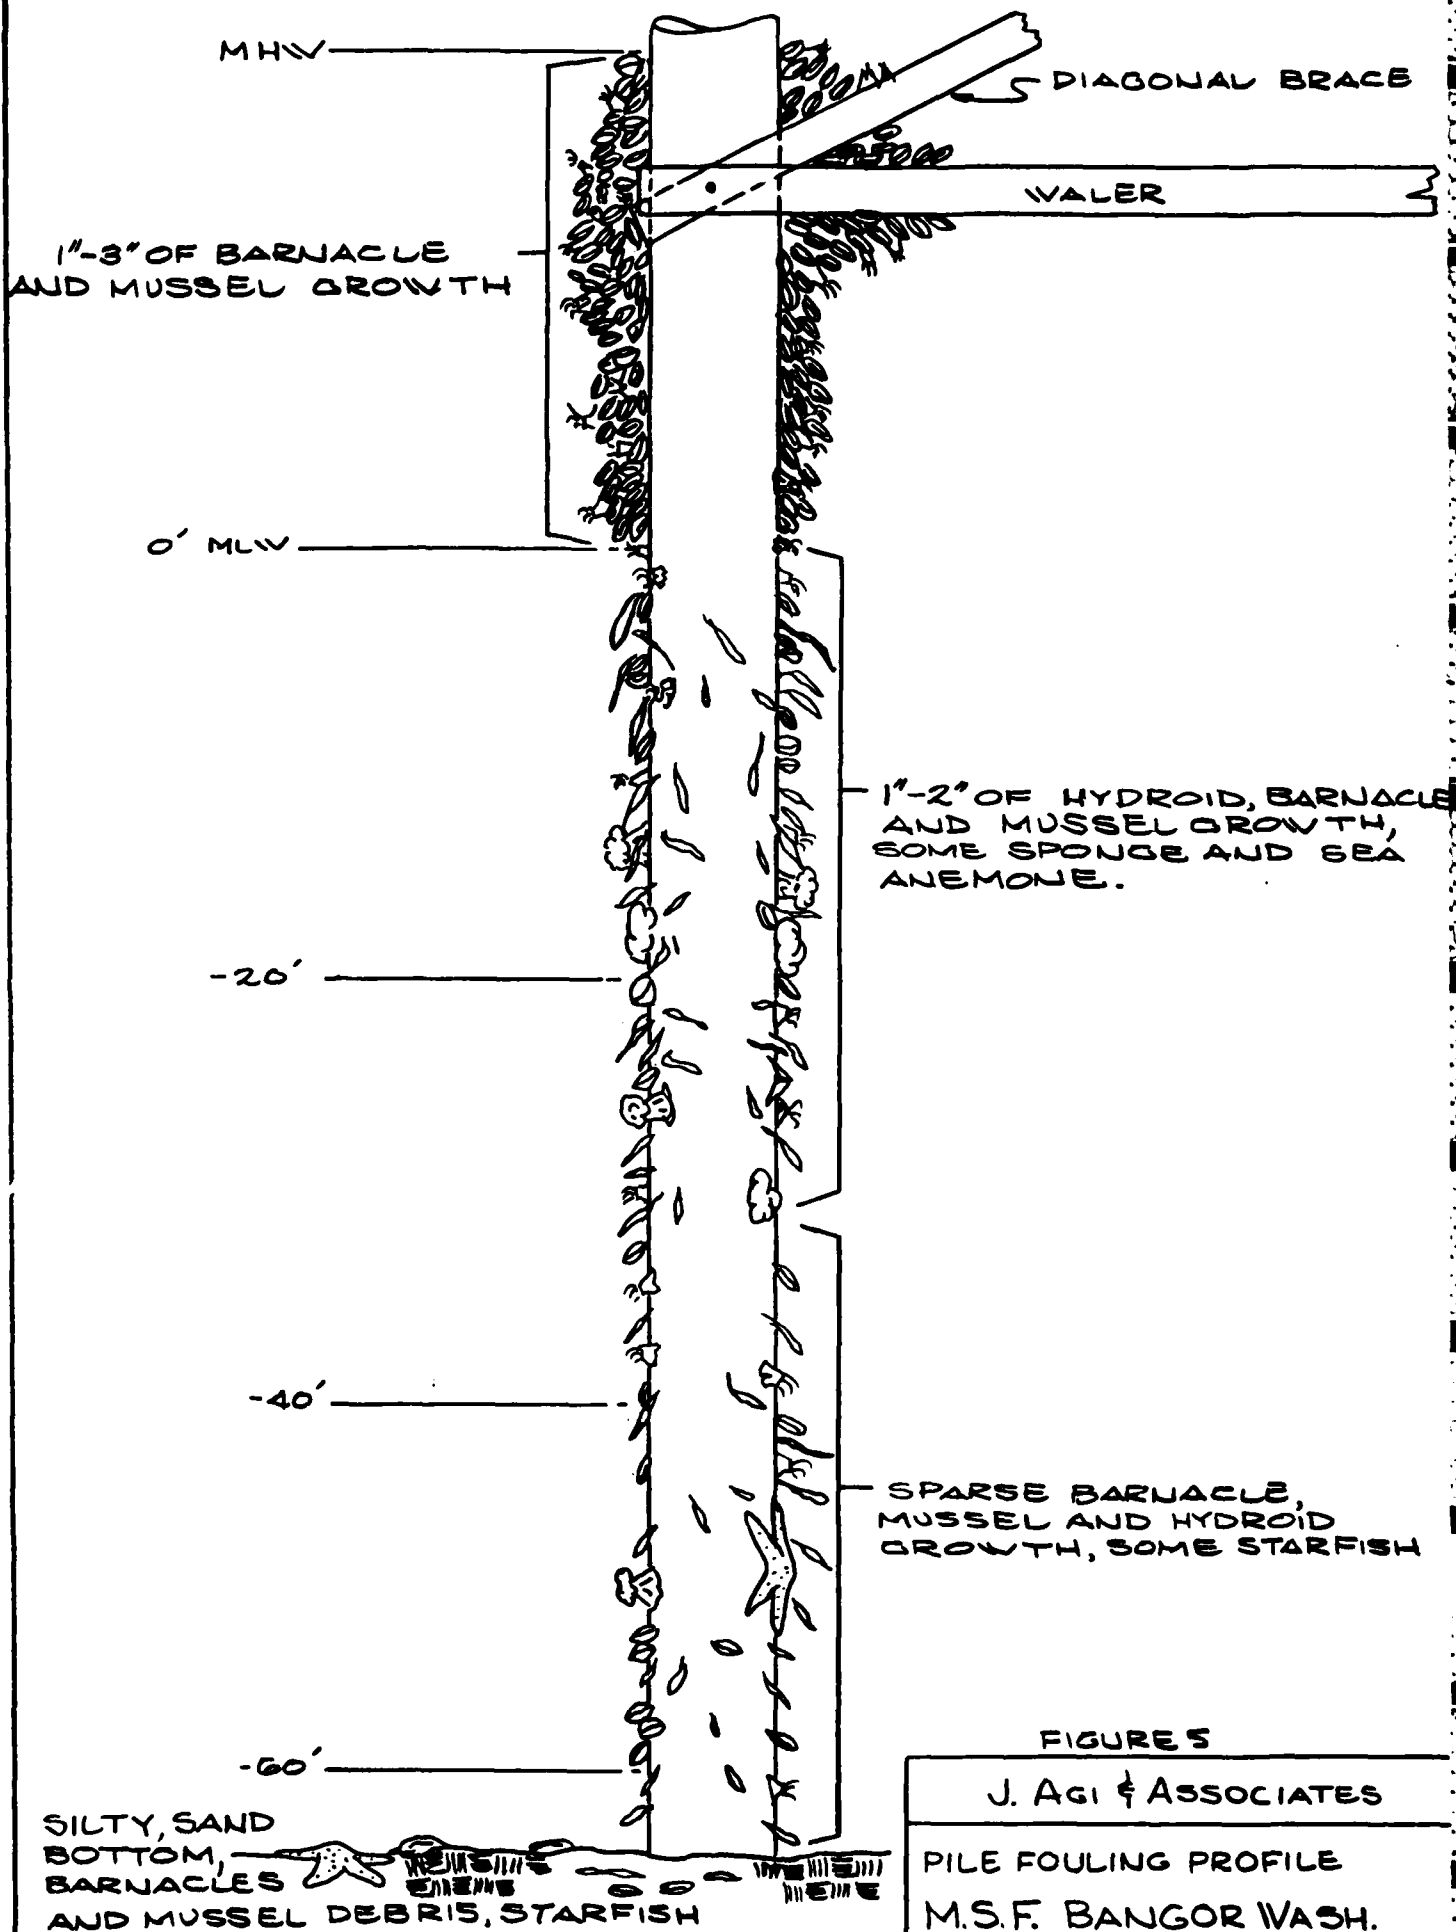 MHW
DIAGONAL BRACE
WALER
1"-3" OF BARNACLE
AND MUSSEL GROWTH
0' MLW
1"-2" OF HYDROID, BARNACLE
AND MUSSEL GROWTH,
SOME SPONGE AND SEA
ANEMONE.
-20'
-40'
SPARSE BARNACLE,
MUSSEL AND HYDROID
GROWTH, SOME STARFISH
-60'
SILTY, SAND
BOTTOM,
BARNACLES
AND MUSSEL DEBRIS, STARFISH
FIGURE 5
J. AGI & ASSOCIATES
PILE FOULING PROFILE
M.S.F. BANGOR WASH.